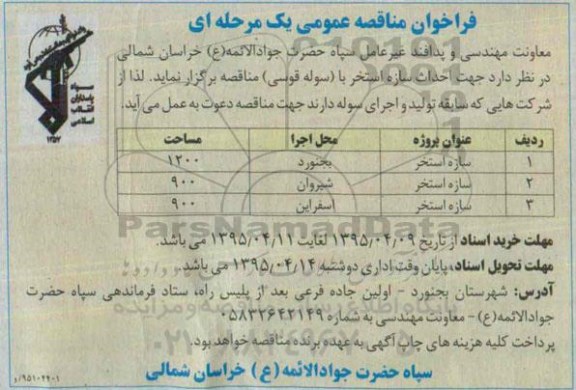 فراخوان مناقصه عمومی یک مرحله ای
معاونت مهندسی و پدافند غیرعامل سپاه حضرت جوادالائمه(ع) خراسان شمالی
در نظر دارد جهت احداث سازه استخر با (سوله قوسی) مناقصه برگزار نماید. لذا از
شرکت هایی که سابقه تولید و اجرای سوله دارند جهت مناقصه دعوت به عمل می آید.
ردیف عنوان پروژه محل اجرا مساحت
۱ سازه استخر بجنورد ۱۲۰۰
۲ سازه استخر شیروان ۹۰۰
۳ سازه استخر اسفراین ۹۰۰
ParsNamadData
مهلت خرید اسناد از تاریخ ۱۳۹۵/۰۴/۰۹ لغایت ۱۳۹۵/۰۴/۱۱ می باشد.
مهلت تحویل اسناد، پایان وقت اداری دوشنبه ۱۳۹۵/۰۴/۱۴ می باشد.
آدرس: شهرستان بجنورد - اولین جاده فرعی بعد از پلیس راه، ستاد فرماندهی سپاه حضرت
جوادالائمه(ع) - معاونت مهندسی به شماره ۰۵۸۳۲۶۴۲۱۴۹
پرداخت کلیه هزینه های چاپ آگهی به عهده برنده مناقصه خواهد بود.
سپاه حضرت جوادالائمه (ع) خراسان شمالی